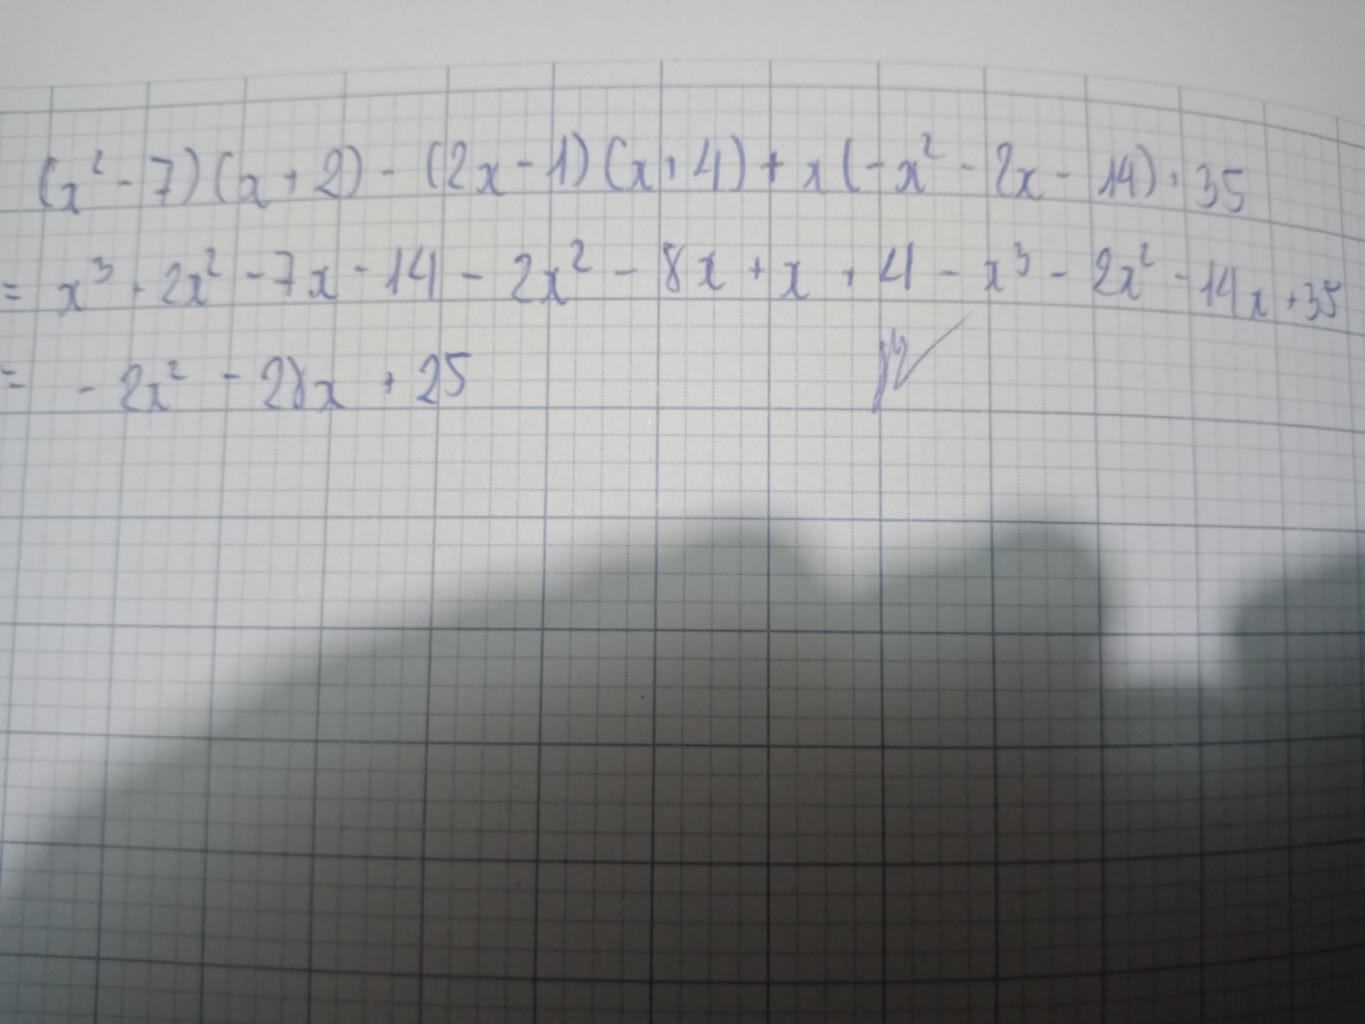 (x² - 7)(x + 2) - (2x - 1)(x + 4) + x(-x² - 2x - 14) + 35
= x³ + 2x² - 7x - 14 - 2x² - 8x + x + 4 - x³ - 2x² - 14x + 35
= - 2x² - 28x + 25